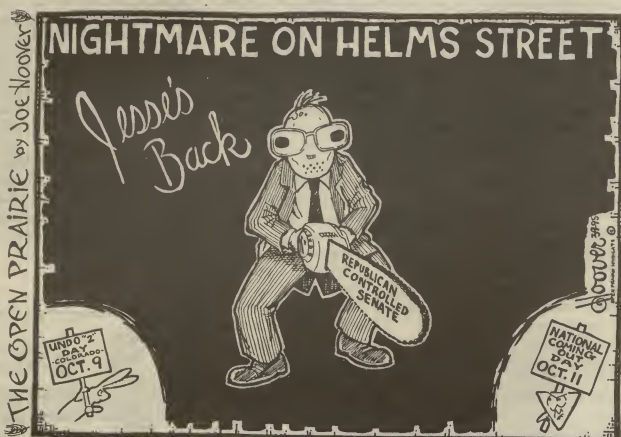 THE OPEN PRAIRIE by JOE HOOVER
NIGHTMARE ON HELMS STREET
Jesse's
Back
REPUBLICAN
CONTROLLED
SENATE
UNDO "2"
DAY
-COLORADO-
OCT. 9
NATIONAL
COMING
OUT
DAY
OCT. 11
Hoover